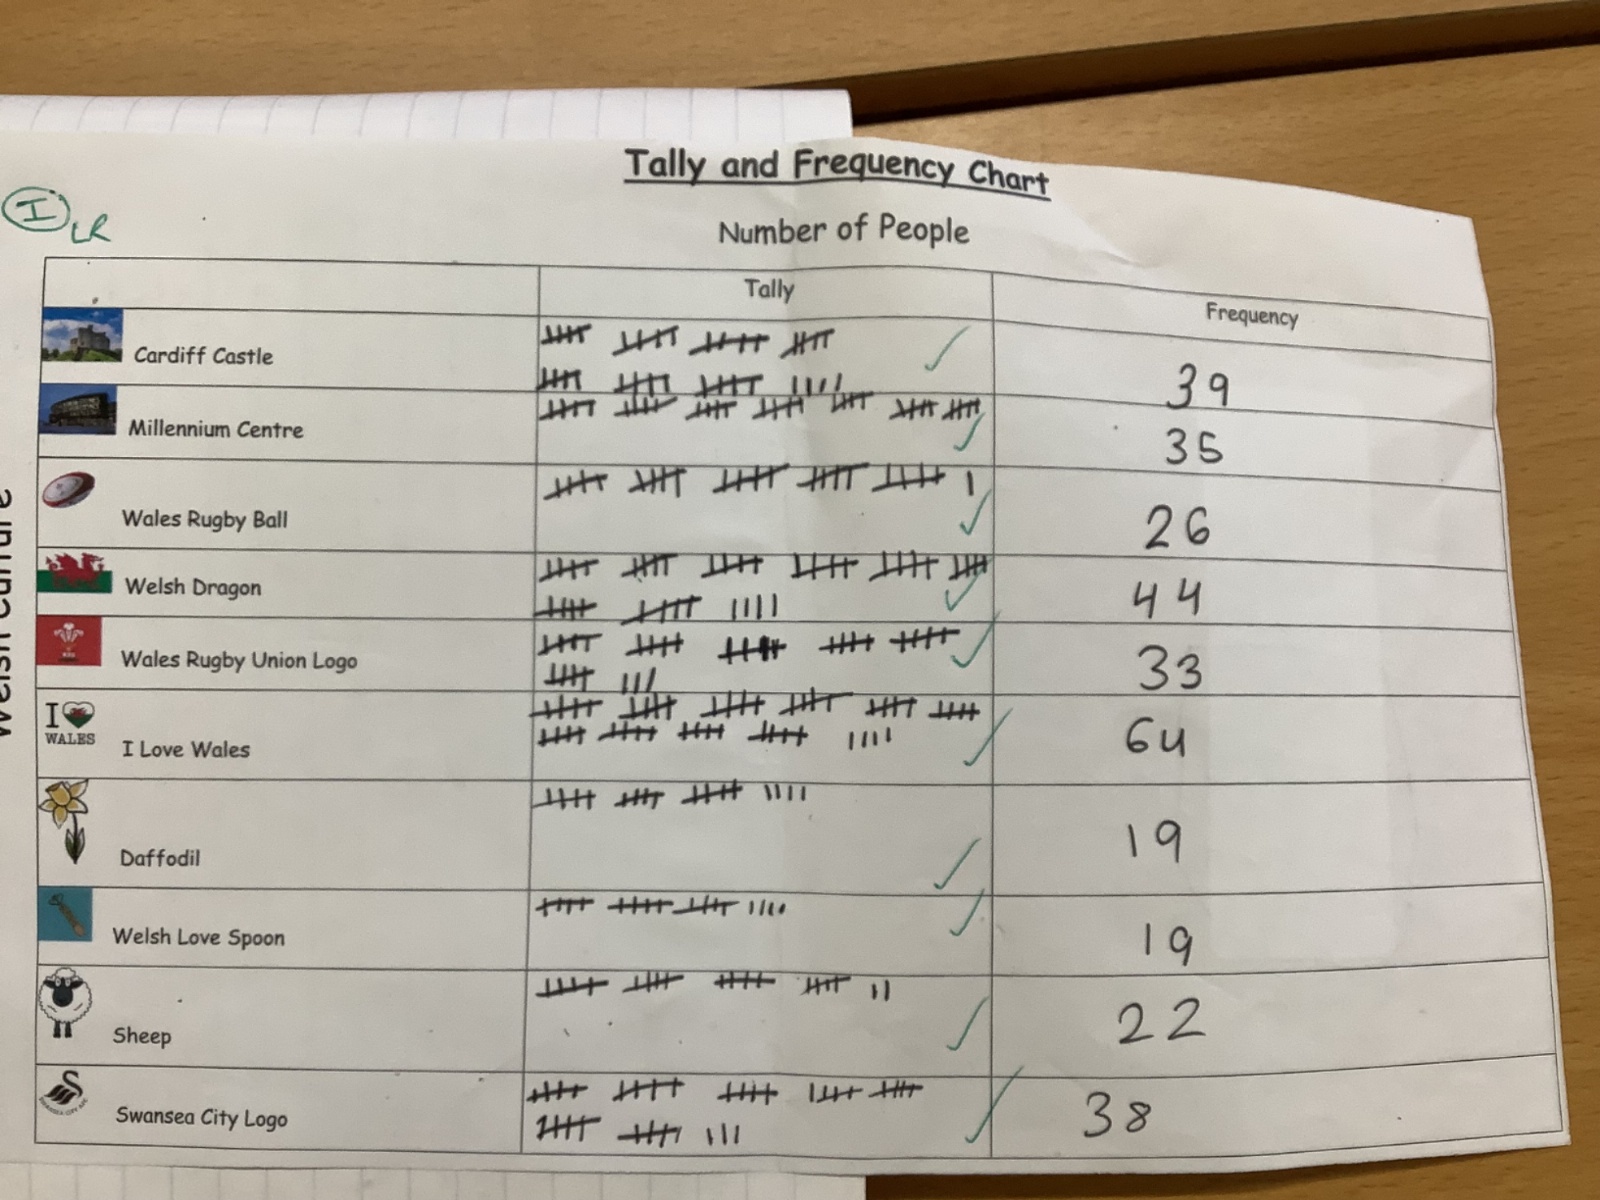 Tally and Frequency Chart
I LR
Number of People
Tally
Frequency
Cardiff Castle
39
Millennium Centre
35
Wales Rugby Ball
26
Welsh Dragon
44
Wales Rugby Union Logo
33
I
WALES
I Love Wales
64
Daffodil
19
Welsh Love Spoon
19
Sheep
22
Swansea City Logo
38